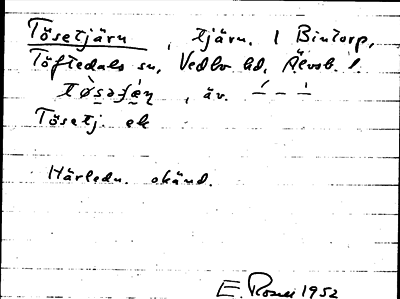 Tösetjärn, tjärn. I Bintorp,
Töftedals sn, Vedbo hd, Älvsb. l.
tø̀səʃæ̀ɳ, äv. –́ – –̀
Tösetj. ek
Härledn. okänd.
E. Rosell 1952